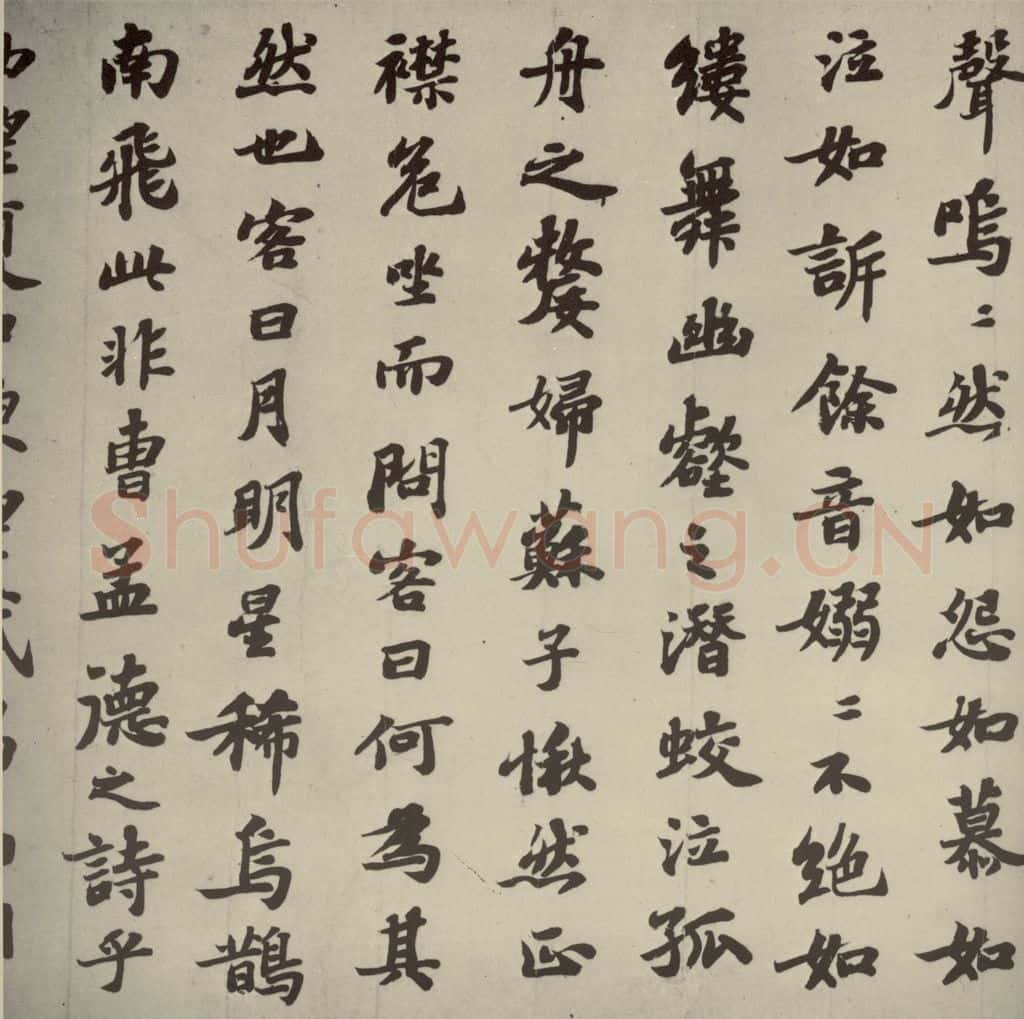 聲嗚〻然如怨如慕如
泣如訴餘音嫋〻不絕如
縷舞幽壑之潛蛟泣孤
舟之嫠婦蘇子愀然正
襟危坐而問客曰何為其
然也客曰月明星稀烏鵲
南飛此非曹孟德之詩乎
Shufawang.CN